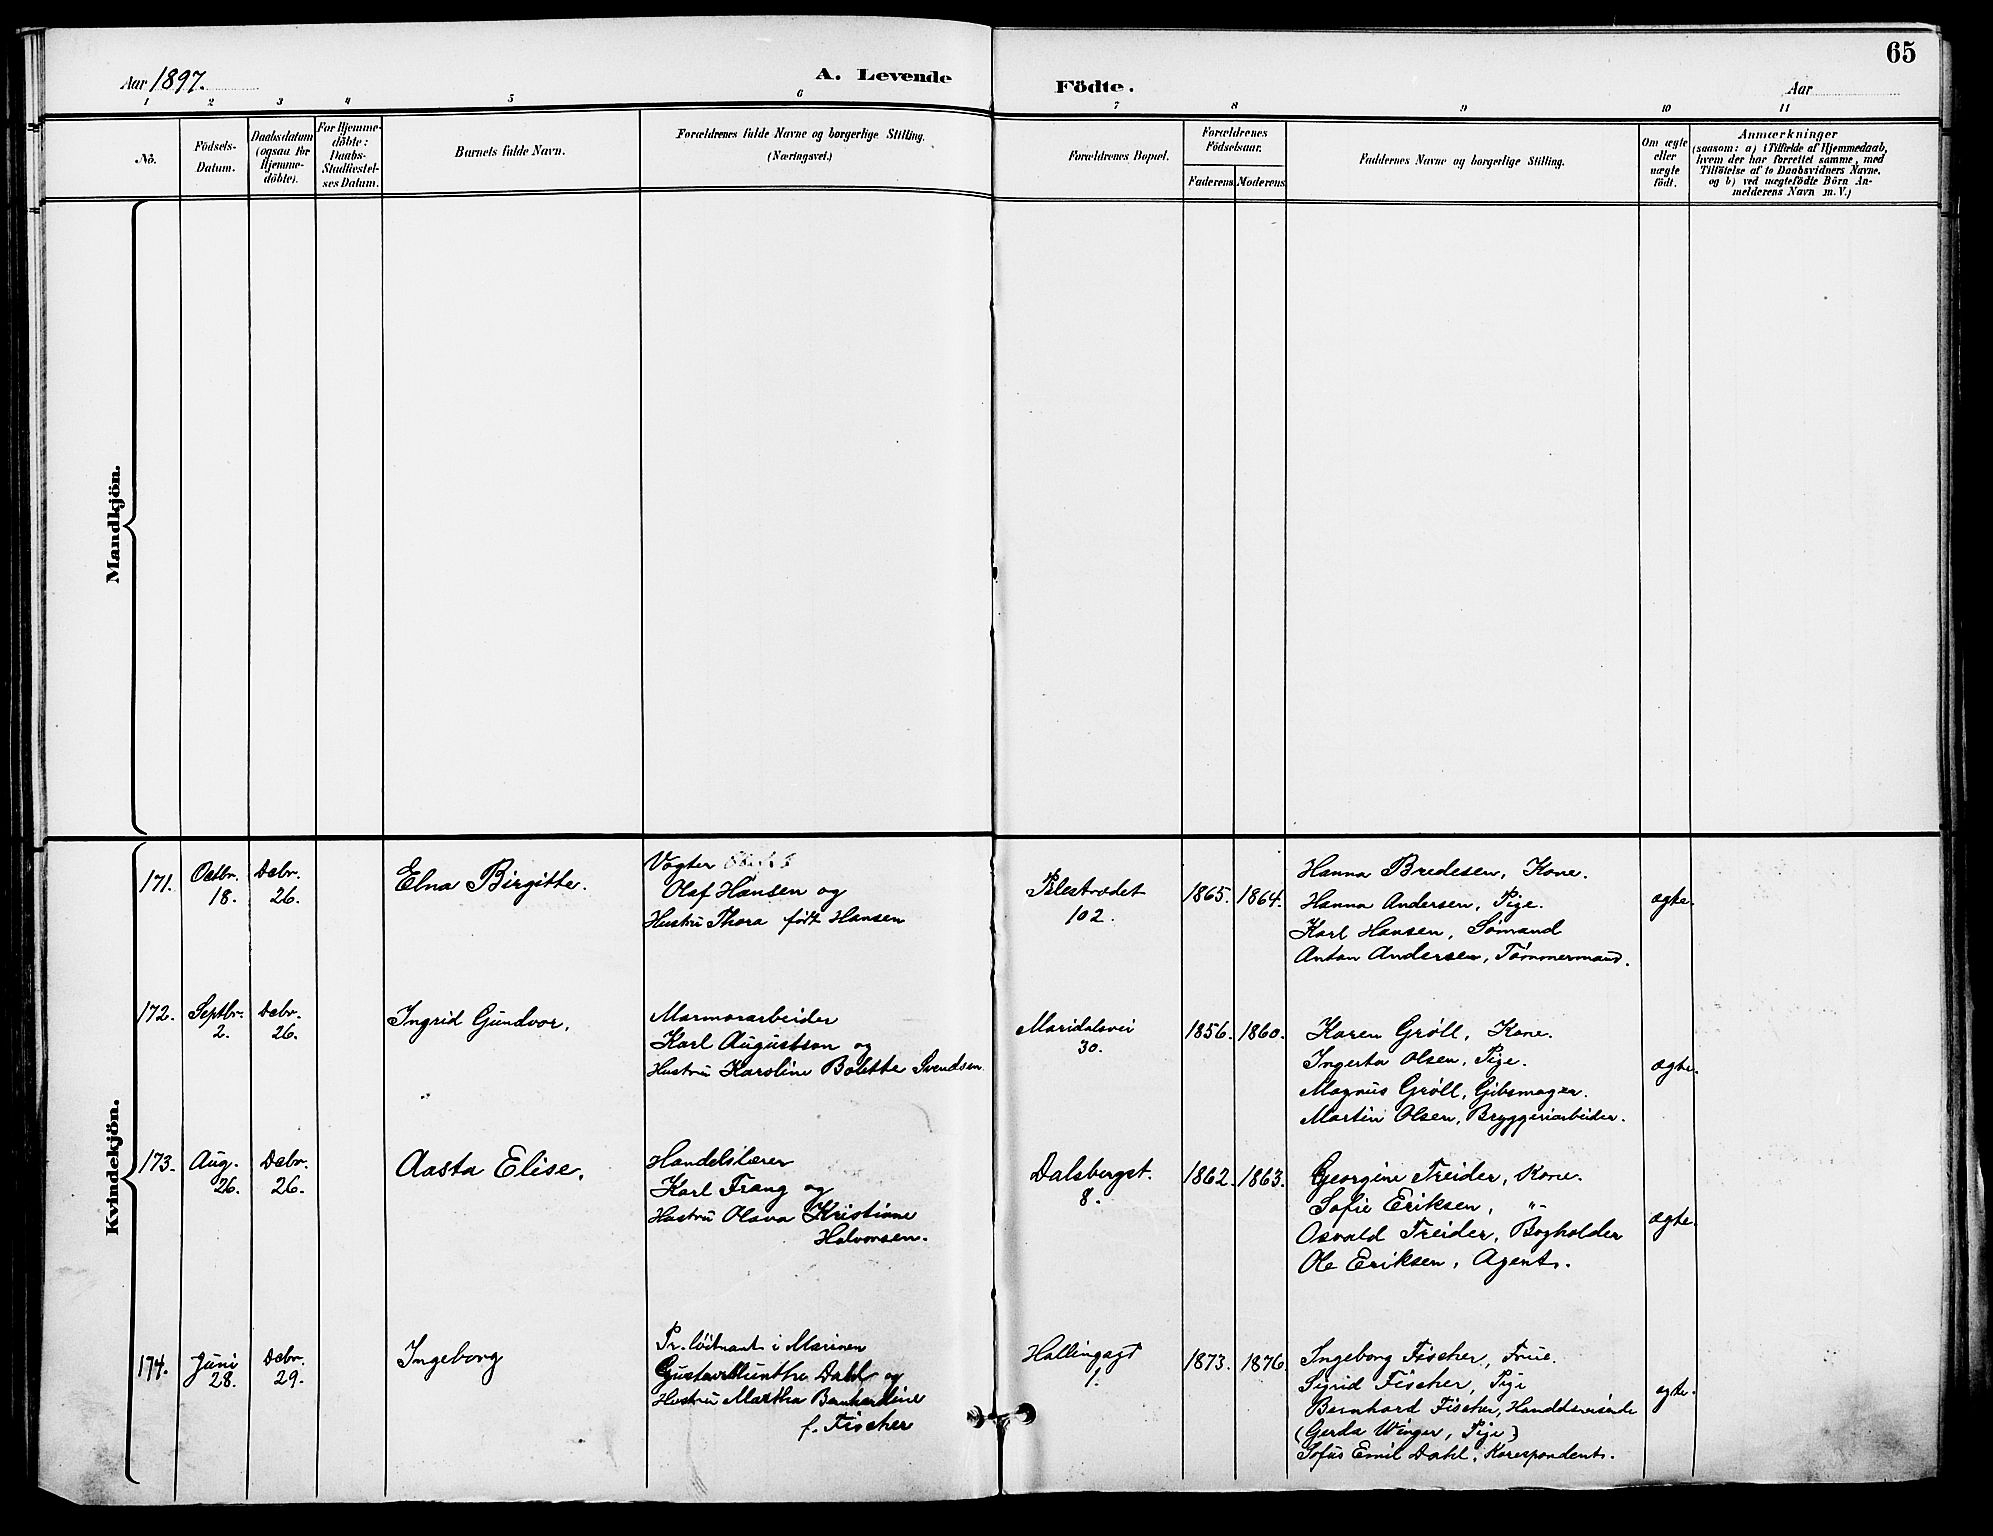 65
Aar 1897.
A. Levende Födte.
Aar
1 2 3 4 5 6 7 8 9 10 11
No.
Födsels-
Datum.
Daabsdatum
(ogsaa for
Hjemme-
döbte).
For Hjemme-
döbte:
Daabs-
Stadfæstel-
ses Datum.
Barnets fulde Navn.
Forældrenes fulde Navne og borgerlige Stilling.
(Næringsvei.)
Forældrenes Bopæl.
Forældrenes
Födselsaar.
Faderens
Moderens
Faddernes Navne og borgerlige Stilling.
Om ægte
eller
uægte
födt.
Anmærkninger
(saasom: a) i Tilfælde af Hjemmedaab,
hvem der har forrettet samme, med
Tilföielse af to Daabsvidners Navne,
og b) ved uægtefödte Börn An-
melderens Navn m. V.)
Mandkjön.
Kvindekjön.
171.
Octbr.
18.
Decbr.
26.
Elna Birgitte.
Vogter
Olaf Hansen og
Hustru Thora født Hansen
Pilestrædet
102.
1865.
1864.
Hanna Bredesen, Kone.
Hanna Andersen, Pige.
Karl Hansen, Sømand
Anton Andersen, Tømmermand.
ægte.
172.
Septbr.
2.
Decbr.
26.
Ingrid Gundvor.
Marmorarbeider
Karl Augustson og
Hustru Karoline Boletta Svendsen
Maridalsvei
30.
1856.
1860.
Karen Grøll, Kone.
Ingerta Olsen, Pige.
Magnus Grøll, Gibsmager.
Martin Olsen, Bryggeriarbeider.
ægte.
173.
Aug.
26.
Decbr.
26.
Aasta Elise.
Handelslærer
Karl Frang og
Hustru Olava Kristiane
Halvorsen.
Dalsbergst.
8.
1862.
1863.
Georgine Treider, Kone.
Sofie Eriksen, "-
Osvald Treider, Bogholder
Ole Eriksen, Agent.
ægte.
174.
Juni
28.
Decbr.
29.
Ingeborg
Pr. löitnant i Marinen
Gustav Munthe Dahl og
Hustru Martha Bernhardine
f. Fischer
Hallingagt
1.
1873.
1876.
Ingeborg Fischer, Frue.
Sigrid Fischer, Pige
Bernhard Fischer, Handdsreisende
(Gerda Winger, Pige)
Sofus Emil Dahl, Korespondent.
ægte.